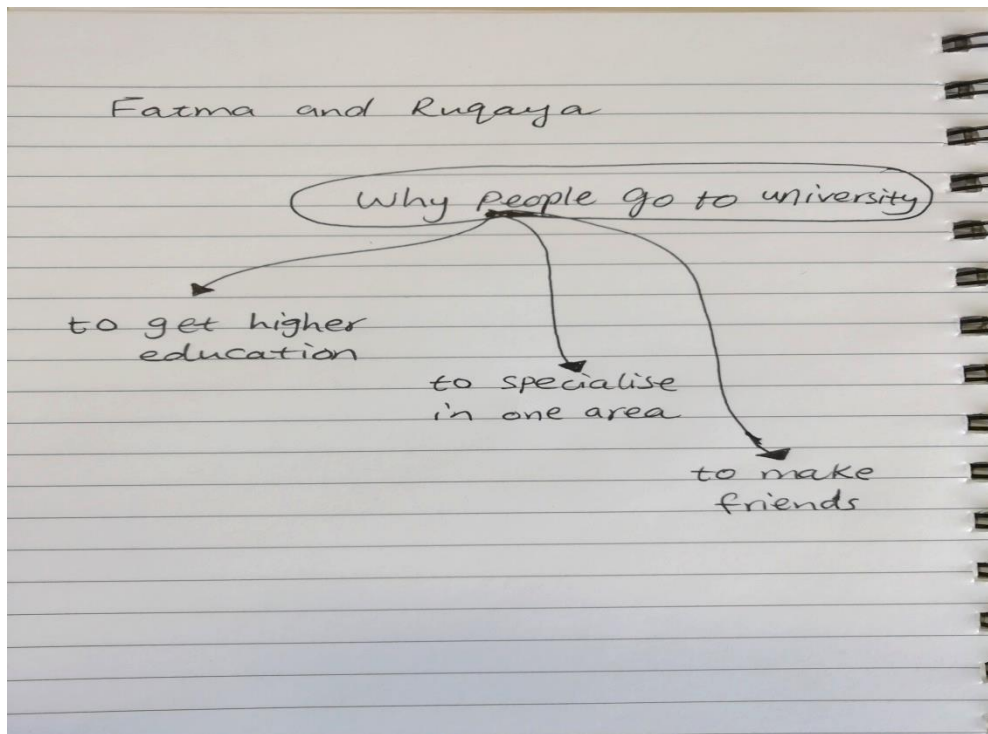 Fatma and Ruqaya
Why people go to university
to get higher
education
to specialise
in one area
to make
friends